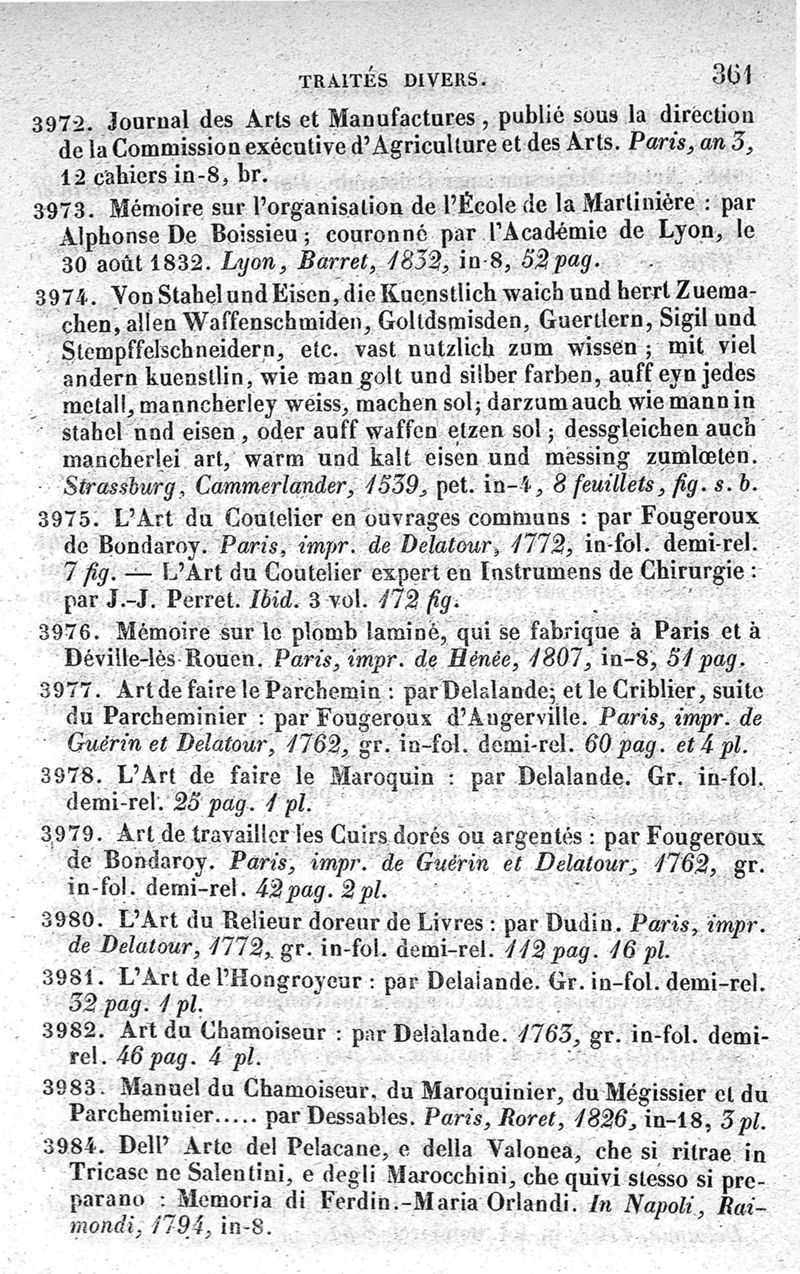 TRAITÉS DIVERS. 361
3972. Journal des Arts et Manufactures, publié sous la direction
de la Commission exécutive d'Agriculture et des Arts. Paris, an 3,
12 cahiers in-8, br.
3973. Mémoire sur l'organisation de l'École de la Martinière : par
Alphonse De Boissieu ; couronné par l'Académie de Lyon, le
30 août 1832. Lyon, Barret, 1832, in-8, 52 pag.
3974. Von Stahel und Eisen, die Kuenstlich waich und herrt Zuema-
chen, allen Waffenschmiden, Goltdsmisden, Guertlern, Sigil und
Stempffelschneidern, etc. vast nutzlich zum wissen ; mit viel
andern kuenstlin, wie man golt und silber farben, auff eyn jedes
metall, manncherley weiss, machen sol; darzum auch wie mann in
stahel nnd eisen, oder auff waffen etzen sol ; dessgleichen auch
mancherlei art, warm und kalt eisen und messing zumlœten.
Strassburg, Cammerlander, 1539, pet. in-4, 8 feuillets, fig. s. b.
3975. L'Art du Coutelier en ouvrages communs : par Fougeroux
de Bondaroy. Paris, impr. de Delatour, 1772, in-fol. demi-rel.
7 fig. — L'Art du Coutelier expert en Instrumens de Chirurgie :
par J.-J. Perret. Ibid. 3 vol. 172 fig.
3976. Mémoire sur le plomb laminé, qui se fabrique à Paris et à
Déville-lès-Rouen. Paris, impr. de Hénée, 1807, in-8, 51 pag.
3977. Art de faire le Parchemin : par Delalande; et le Criblier, suite
du Parcheminier : par Fougeroux d'Angerville. Paris, impr. de
Guérin et Delatour, 1762, gr. in-fol. demi-rel. 60 pag. et 4 pl.
3978. L'Art de faire le Maroquin : par Delalande. Gr. in-fol.
demi-rel. 25 pag. 1 pl.
3979. Art de travailler les Cuirs dorés ou argentés : par Fougeroux
de Bondaroy. Paris, impr. de Guérin et Delatour, 1762, gr.
in-fol. demi-rel. 42 pag. 2 pl.
3980. L'Art du Relieur doreur de Livres : par Dudin. Paris, impr.
de Delatour, 1772, gr. in-fol. demi-rel. 112 pag. 16 pl.
3981. L'Art de l'Hongroyeur : par Delalande. Gr. in-fol. demi-rel.
32 pag. 1 pl.
3982. Art du Chamoiseur : par Delalande. 1763, gr. in-fol. demi-
rel. 46 pag. 4 pl.
3983. Manuel du Chamoiseur, du Maroquinier, du Mégissier et du
Parcheminier..... par Dessables. Paris, Roret, 1826, in-18, 3 pl.
3984. Dell' Arte del Pelacane, e della Valonea, che si ritrae in
Tricase ne Salentini, e degli Marocchini, che quivi stesso si pre-
parano : Memoria di Ferdin.-Maria Orlandi. In Napoli, Rai-
mondi, 1794, in-8.